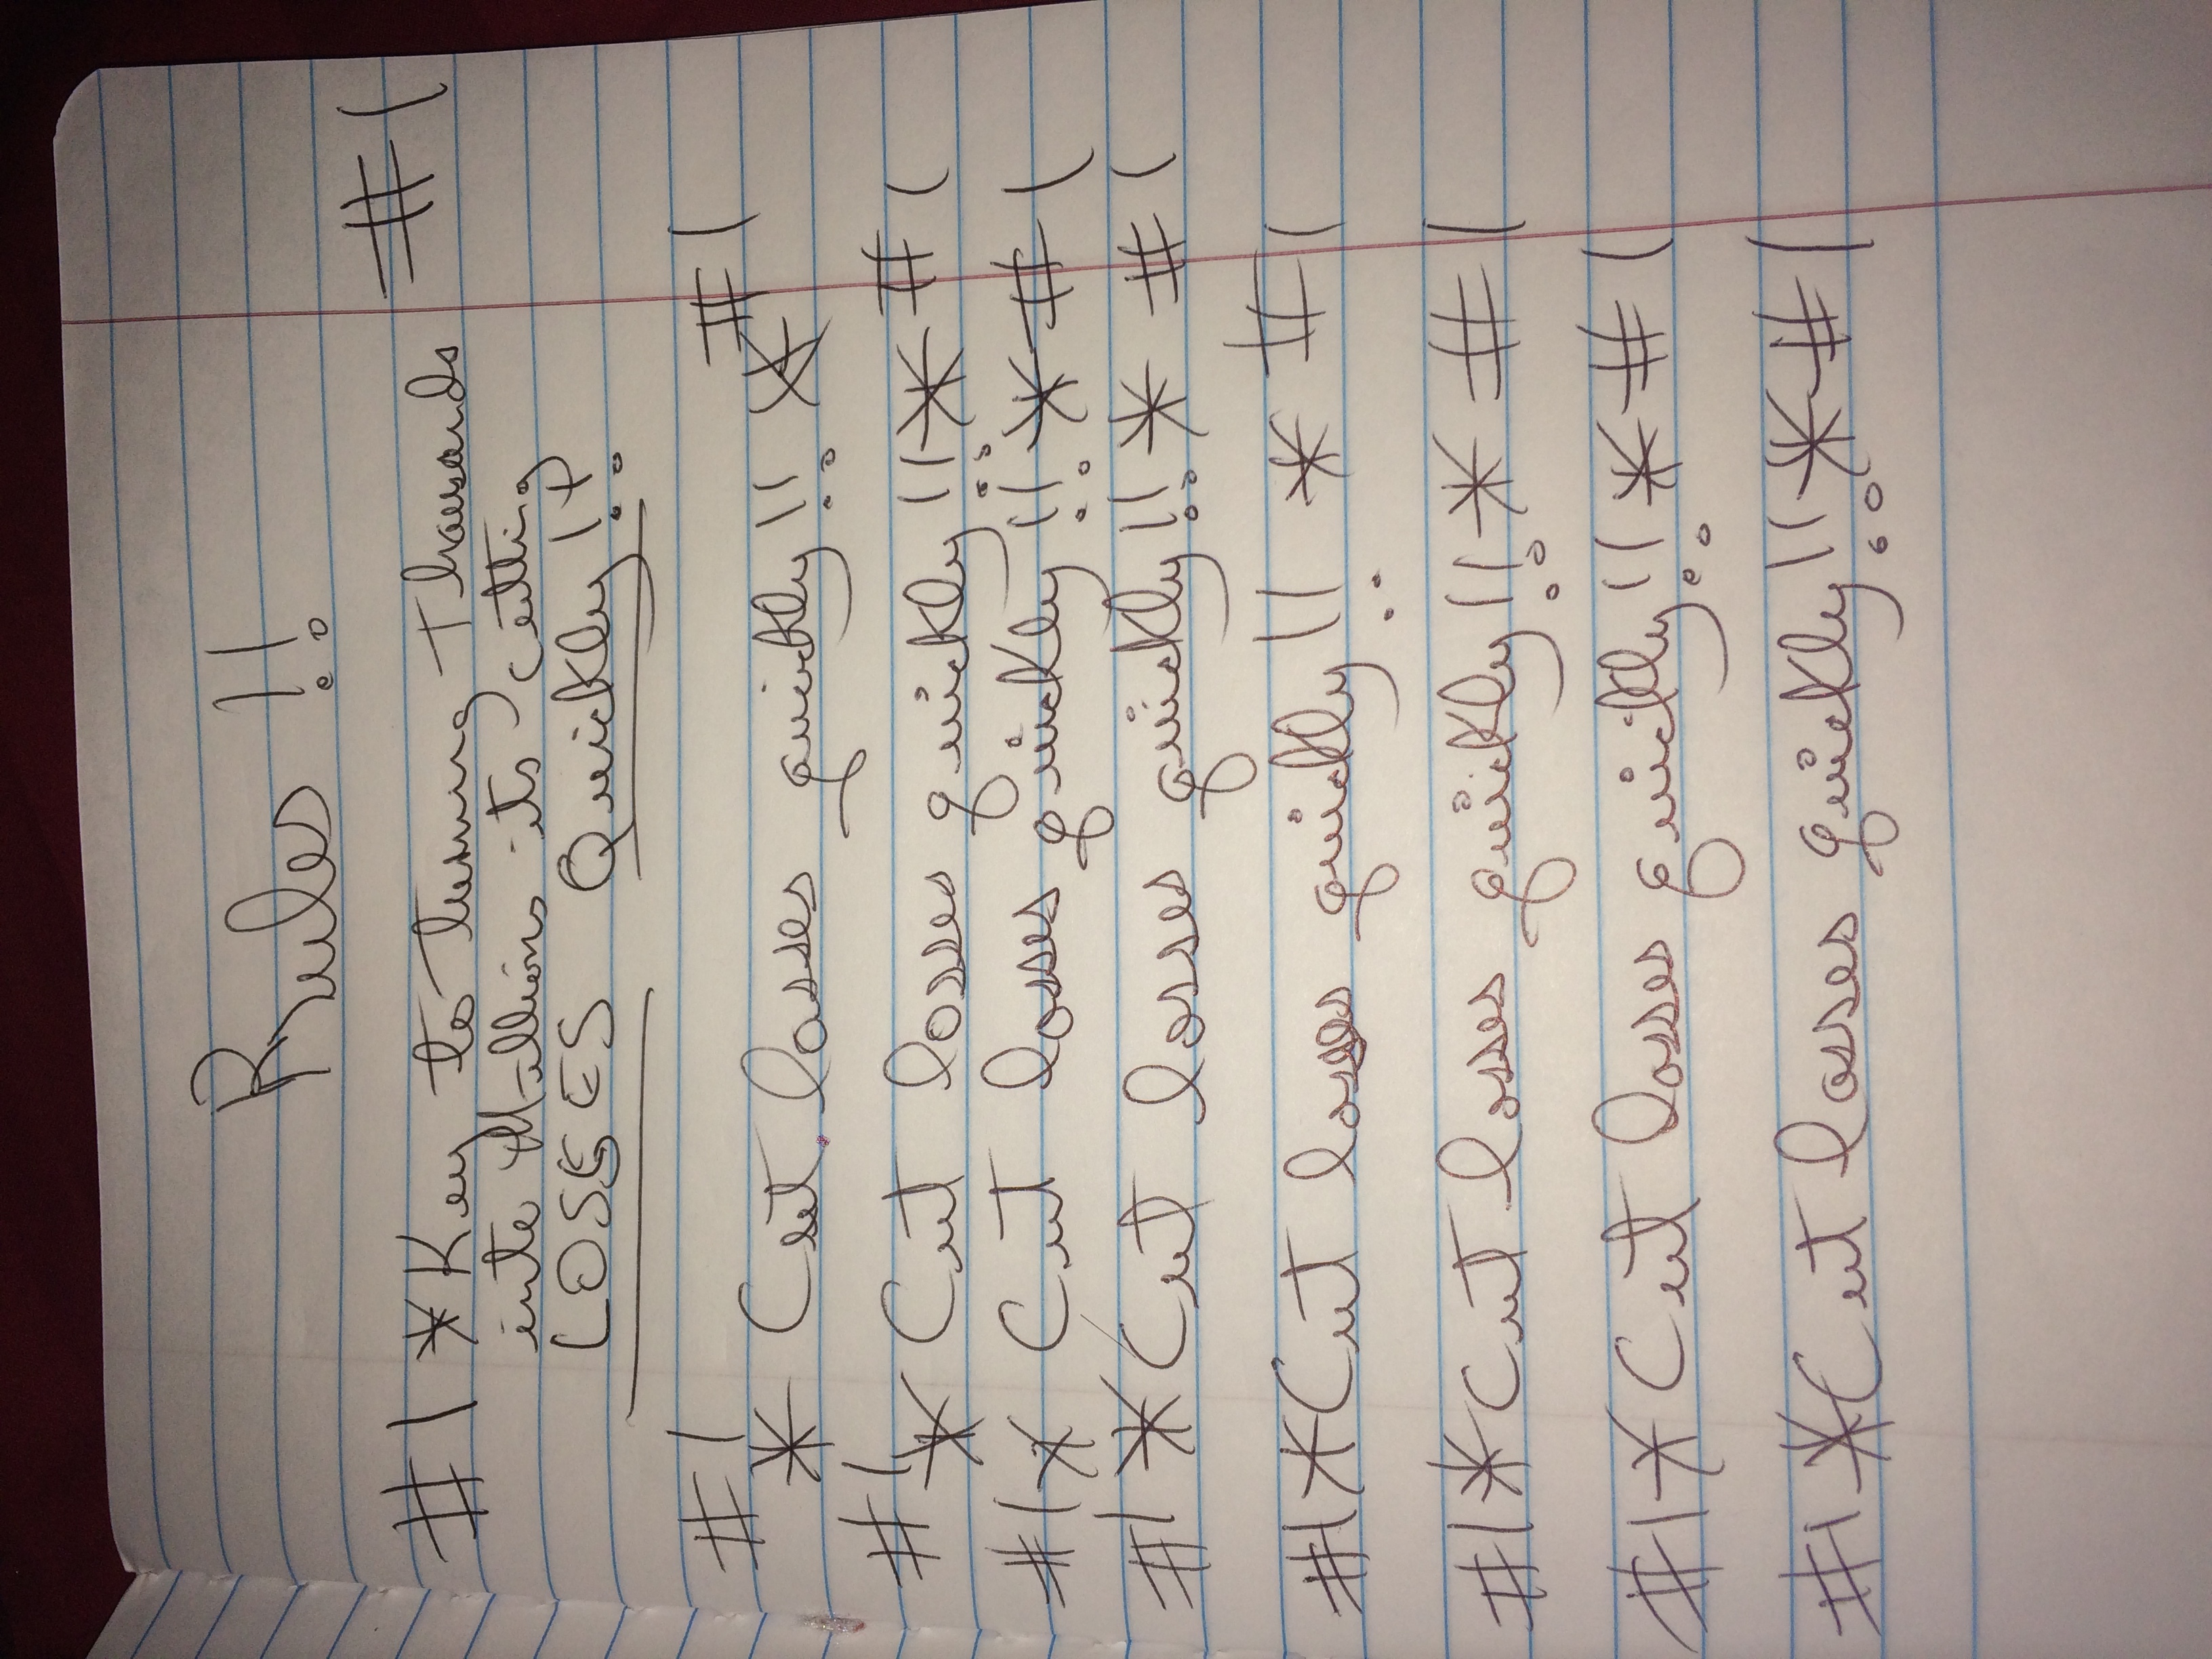 Rules !!
#1 * Key to turning Thousands #1
into Millions its cutting
LOSSES Quickly!!
#1 #1
* Cut losses quickly!! *
#1 * Cut losses quickly!! * #1
#1 * Cut losses quickly!! * #1
#1 * Cut losses quickly!! * #1
#1 * Cut losses quickly!! * #1
#1 * Cut losses quickly!! * #1
#1 * Cut losses quickly!! * #1
#1 * Cut losses quickly!! * #1